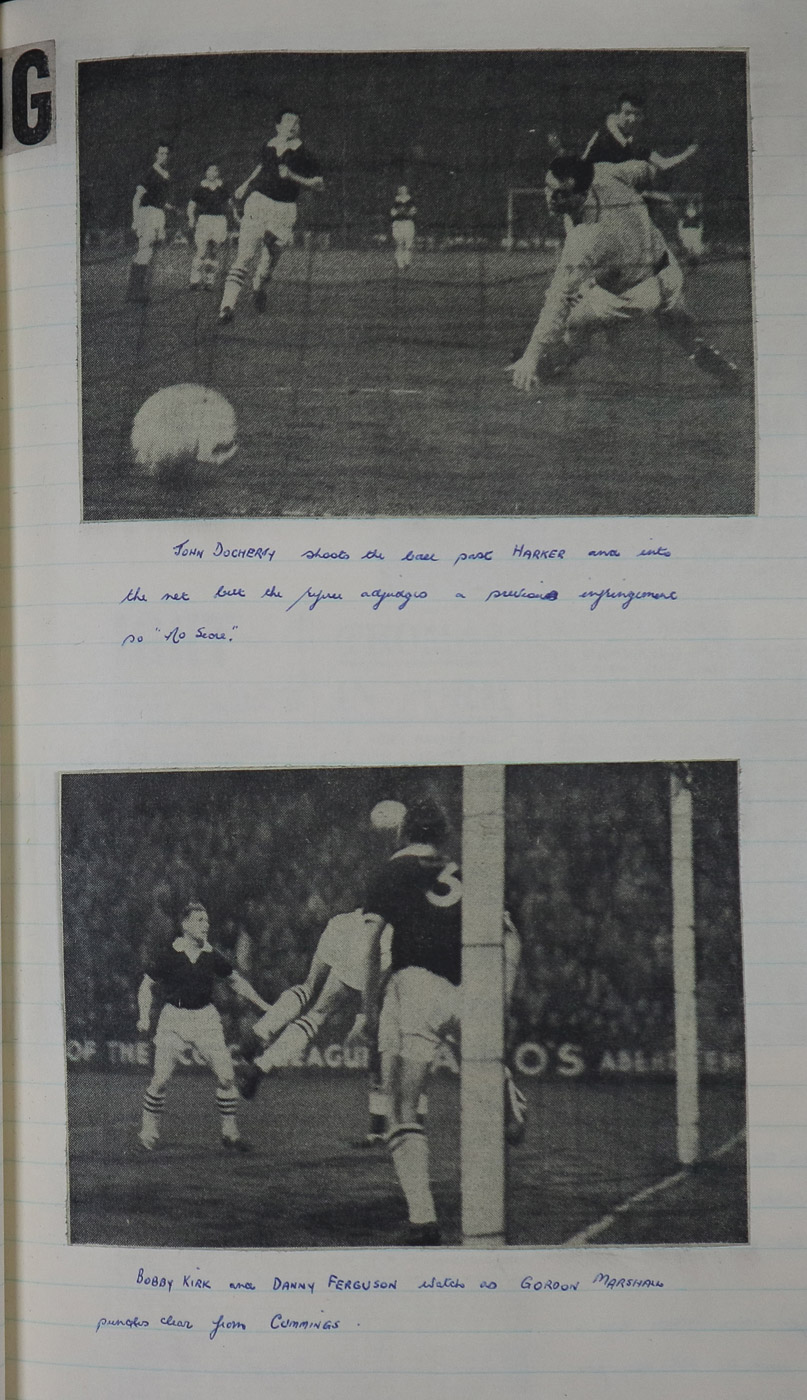 G
John Docherty shoots the ball past HARKER and into
the net but the referee adjudges a previous infringement
so "No Score."
3
OF THE LEAGUE O'S ABERDEEN
BOBBY KIRK and DANNY FERGUSON watch as GORDON MARSHALL
punches clear from CUMMINGS.